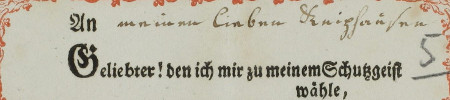 An meinen lieben Kniphausen
5
Geliebter! den ich mir zu meinem Schutzgeist
wähle,